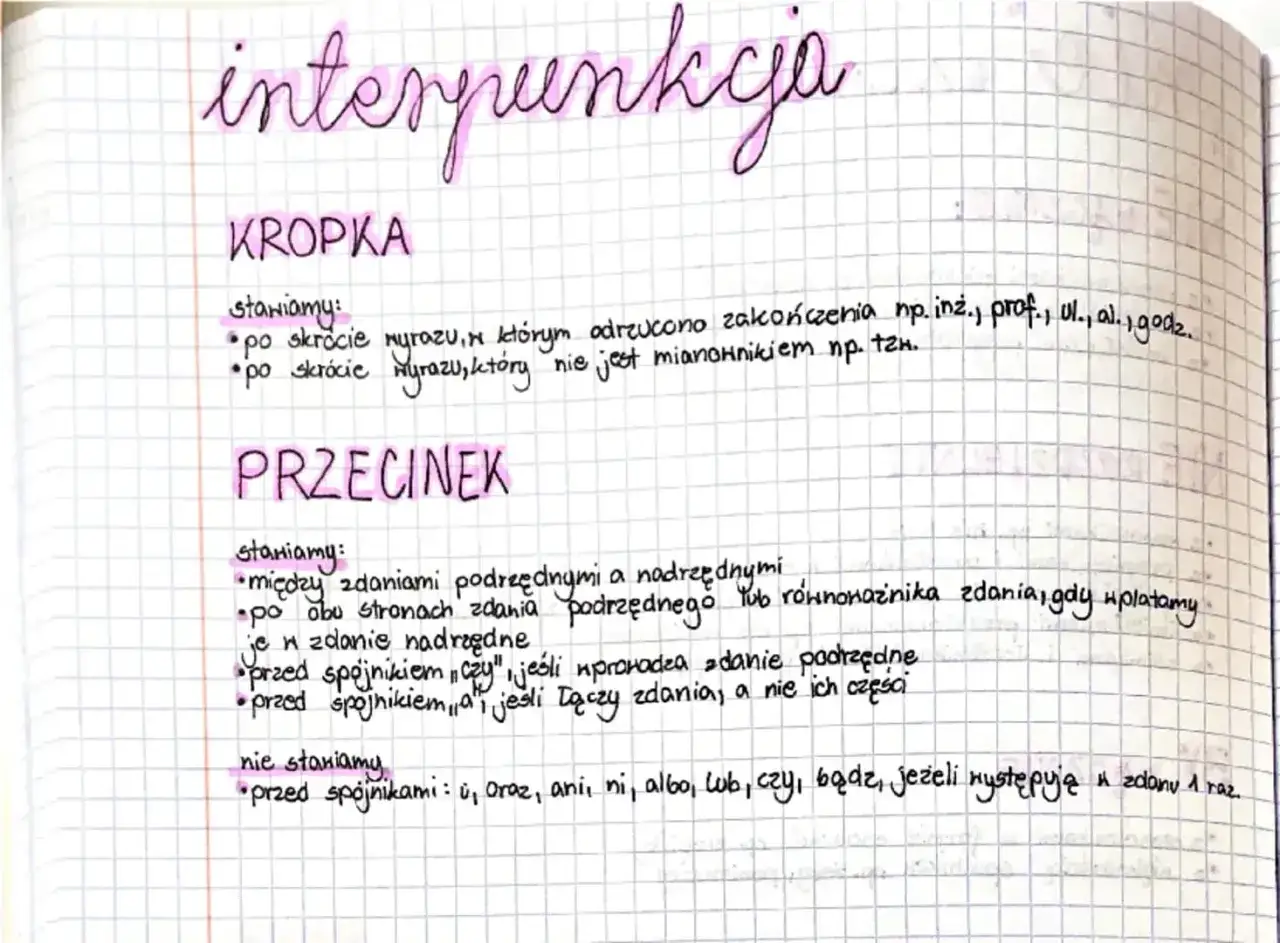 interpunkcja
KROPKA
stawiamy:
•po skrócie wyrazu, w którym odrzucono zakończenia np. inż., prof., ul., al., godz.
•po skrócie wyrazu, który nie jest mianownikiem np. tzw.
PRZECINEK
stawiamy:
•między zdaniami podrzędnymi a nadrzędnymi
•po obu stronach zdania podrzędnego lub równoważnika zdania, gdy wplatamy
je w zdanie nadrzędne
•przed spójnikiem „czy", jeśli wprowadza zdanie podrzędne
•przed spójnikiem „a", jeśli łączy zdania, a nie ich części
nie stawiamy
•przed spójnikami: i, oraz, ani, ni, albo, lub, czy, bądz, jeżeli występują w zdanu 1 raz.